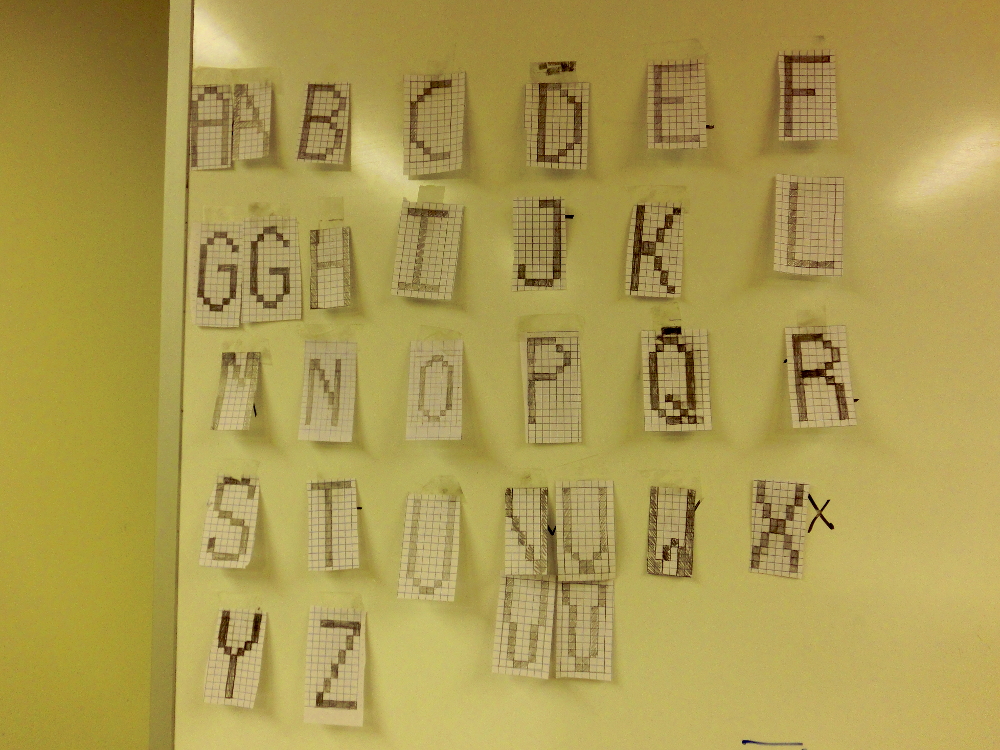 A A B C D E F
G G H I J K L
M N O P Q R
S T U V V W X X
V V
Y Z